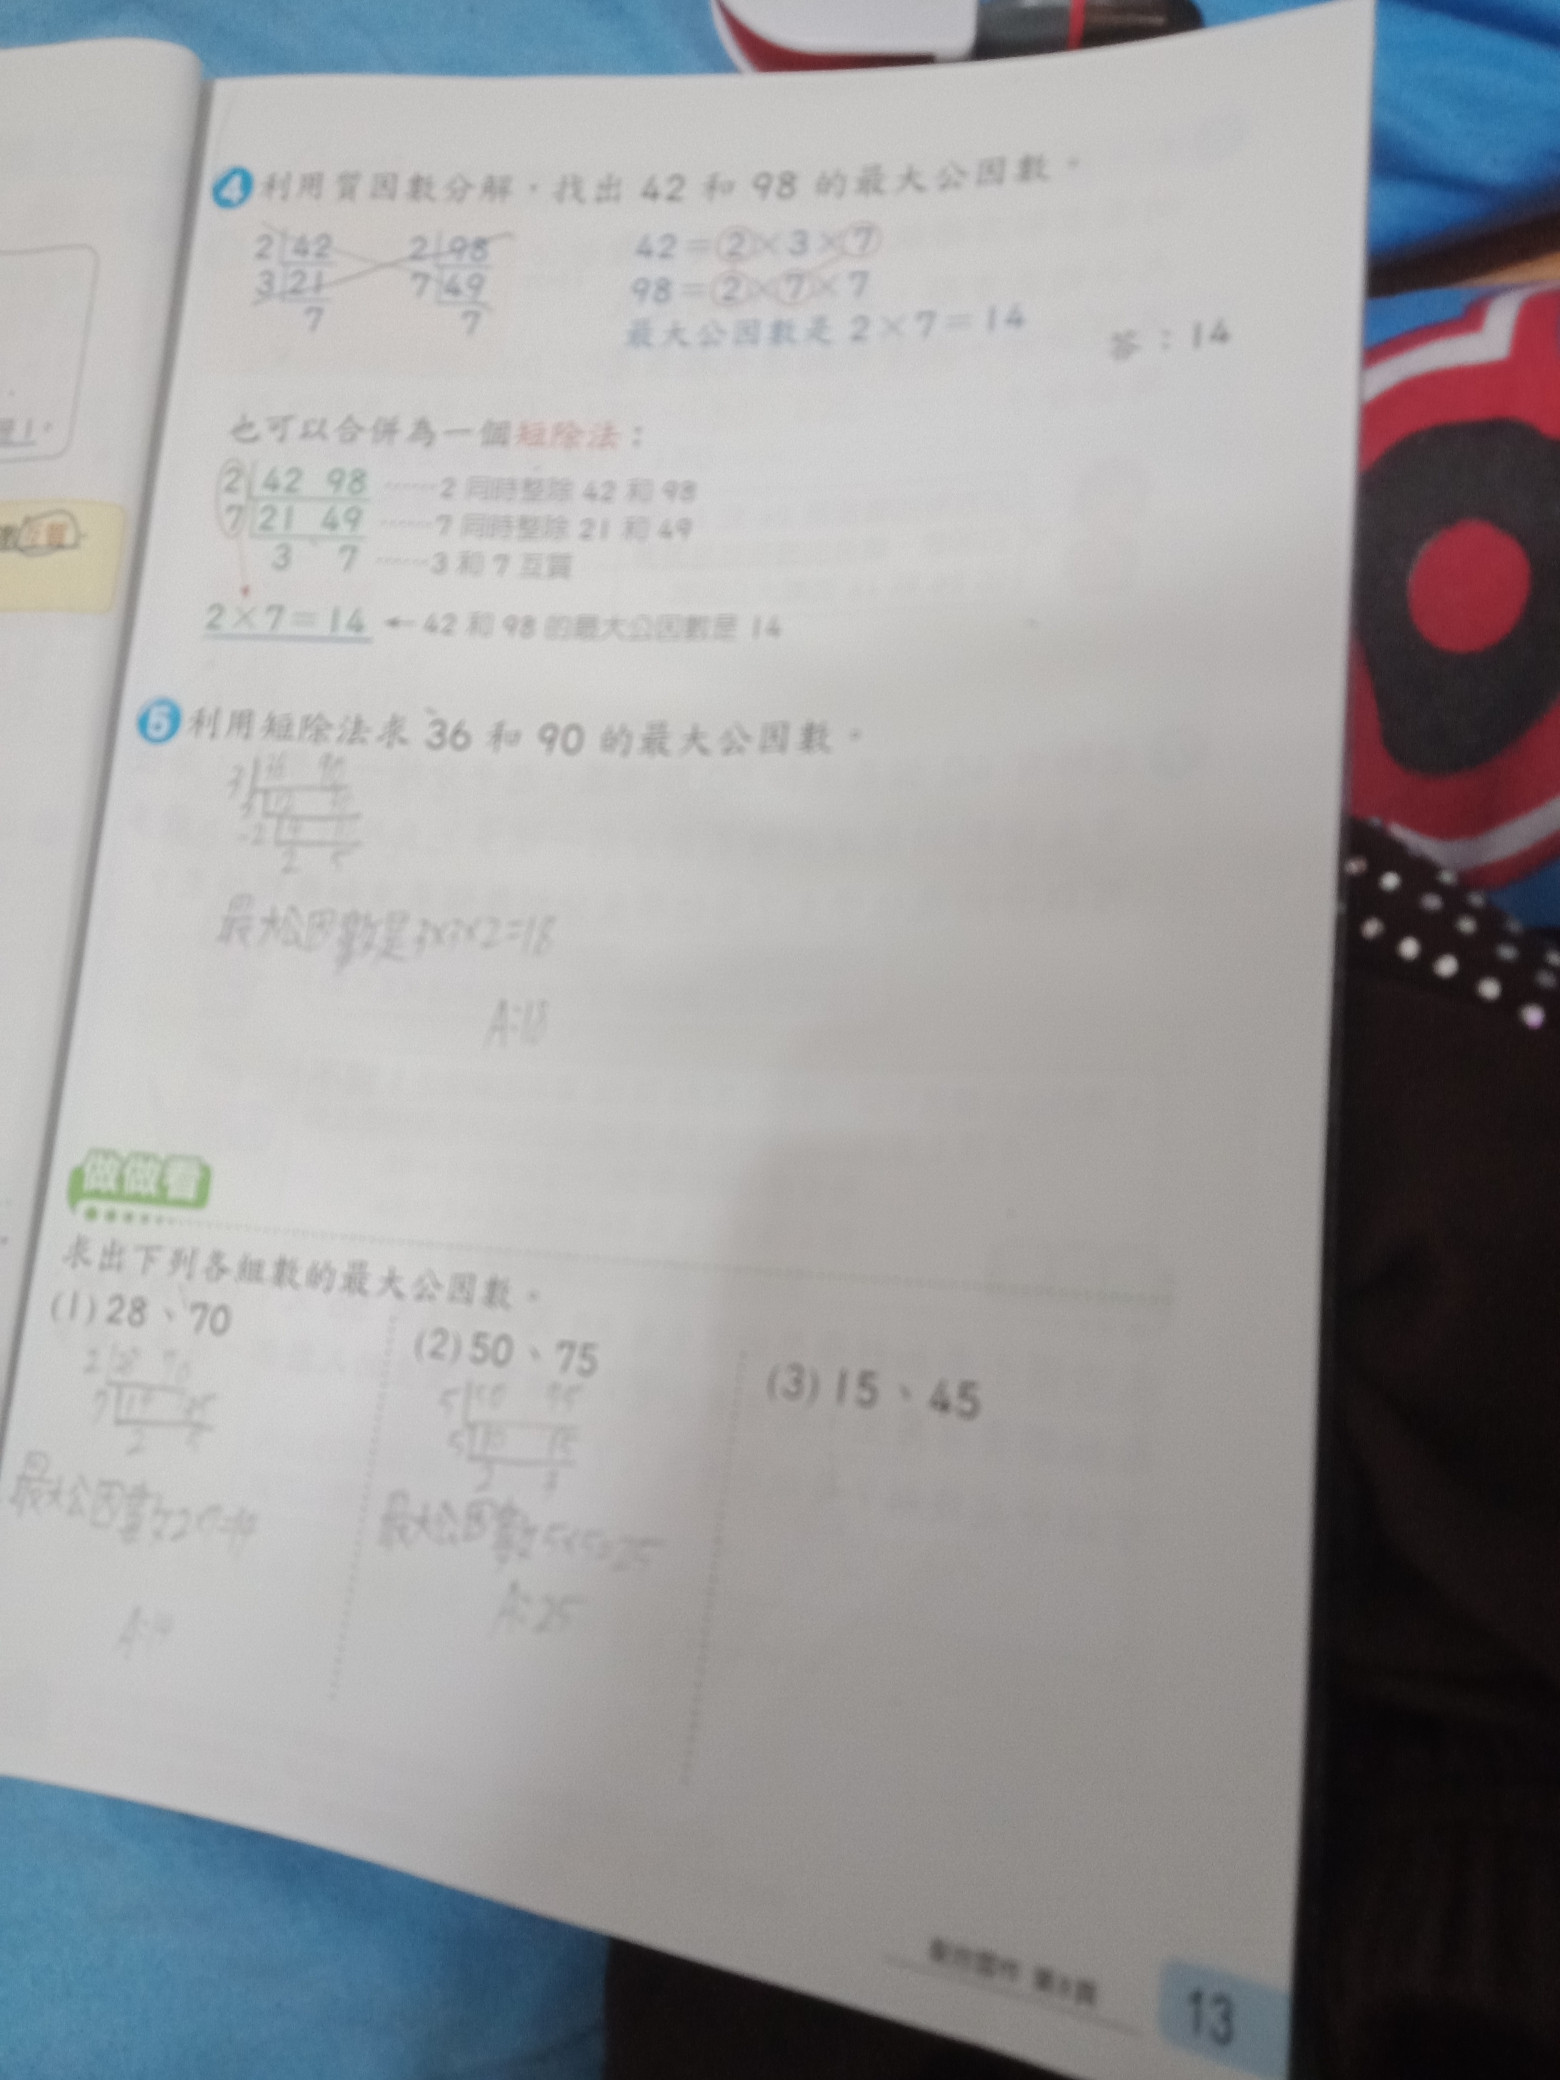 4 利用質因數分解，找出 42 和 98 的最大公因數。
2 42 2 98
3 21 7 49
7 7
42＝2×3×7
98＝2×7×7
最大公因數是 2×7＝14
答：14
也可以合併為一個短除法：
2 42 98 ……2 同時整除 42 和 98
7 21 49 ……7 同時整除 21 和 49
3 7 ……3 和 7 互質
2×7＝14 ←42 和 98 的最大公因數是 14
5 利用短除法求 36 和 90 的最大公因數。
3 36 90
2 5
最大公因數是3×3×2=18
A:18
做做看
求出下列各組數的最大公因數。
(1) 28、70
2 28 70
7 14 35
2 5
最大公因數2×7=14
(2) 50、75
5 50 75
5 10 15
2 3
最大公因數5×5=25
A:25
(3) 15、45
13